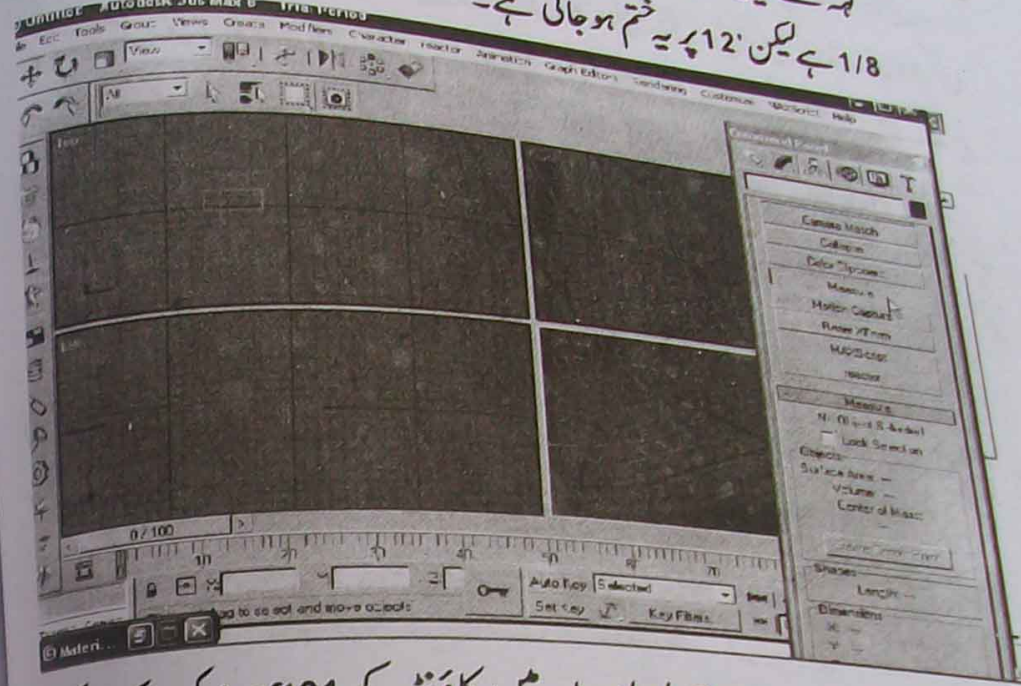 1/8 ہے لیکن '12 پر یہ ختم ہو جاتی ہے۔
Untitled - Autodesk 3ds Max 8 - Trial Period
Tools Group Views Create Modifiers Character reactor Animation Graph Editors Rendering Customize MAXScript Help
View
All
Command Panel
Top
Camera Match
Collapse
Color Clipboard
Measure
Motion Capture
Reset XForm
MAXScript
reactor
Measure
No Object Selected
Lock Selection
Objects
Surface Area: --
Volume: --
Center of Mass:
--
Shapes
Length: --
Dimensions
X: --
Y: --
0 / 100
10 20 30 40 50 70
Auto Key Selected
to select and move objects
Set Key Key Filters...
Materi...